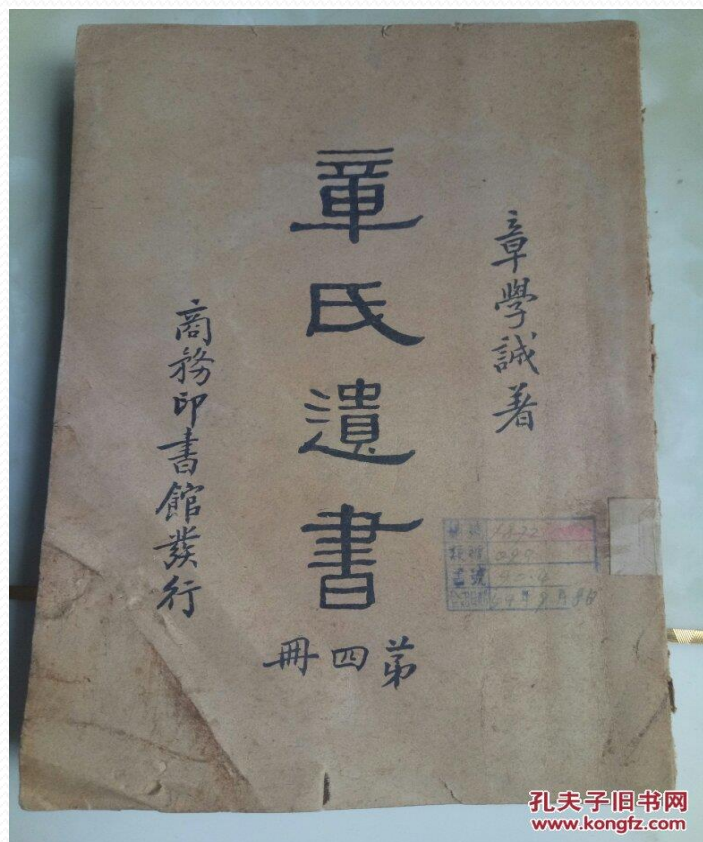 章學誠著
章氏遺書
苐四冊
商務印書館發行
書號
孔夫子旧书网
www.kongfz.com